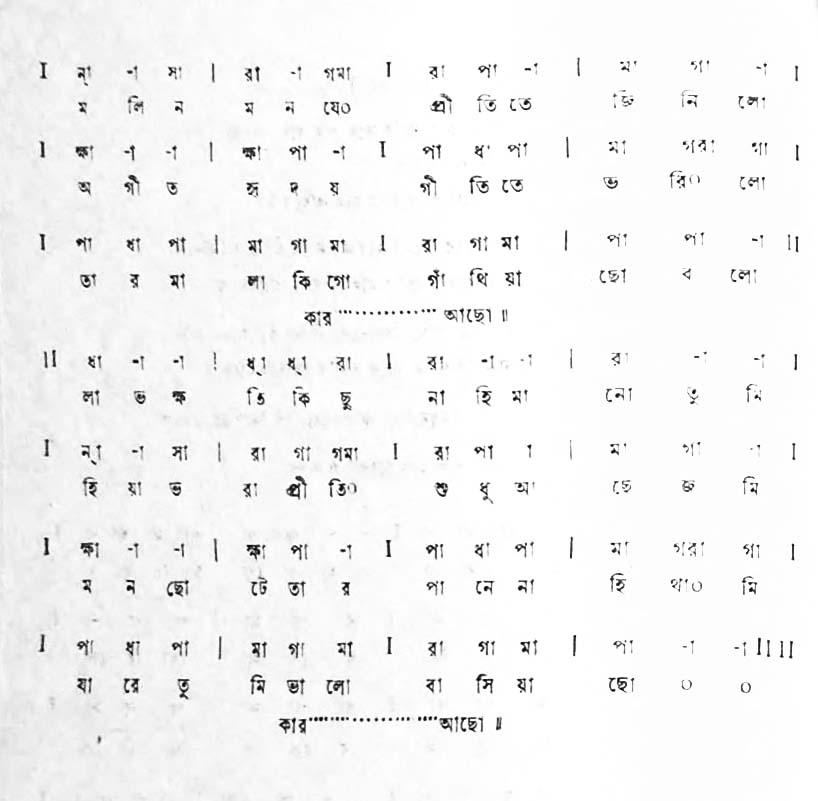 I ন্‌া -া সা | রা -া গমা I রা পা -া | মা গা -া I
ম লি ন ম ন যে০ প্রী তি তে জি নি লো
I ক্ষা -া -া | ক্ষা পা -া I পা ধা পা | মা গরা গা I
অ গী ত হৃ দ য় গী তি তে ভ রি০ লো
I পা ধা পা | মা গা মা I রা গা মা | পা পা -া II
তা র মা লা কি গো গাঁ থি য়া ছো ব লো
কার ............... আছো ॥
II ধা -া -া ! ধ্‌া ধ্‌া রা I রা -া -া | রা -া -া I
লা ভ ক্ষ তি কি ছু না হি মা নো তু মি
I ন্‌া -া সা | রা গা গমা I রা পা া | মা গা -া I
হি য়া ভ রা প্রী তি০ শু ধু আ ছে জ মি
I ক্ষা -া -া | ক্ষা পা -া I পা ধা পা | মা গরা গা I
ম ন ছো টে তা র পা নে না হি থা০ মি
I পা ধা পা | মা গা মা I রা গা মা | পা -া -া II II
যা রে তু মি ভা লো বা সি য়া ছো ০ ০
কার .................... আছো ॥